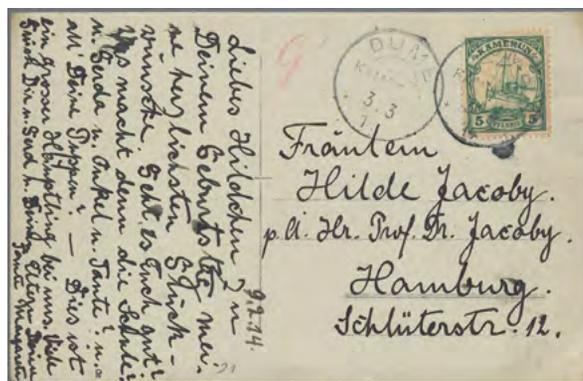 9.2.14.
Liebes Hildchen! Zu
Deinem Geburtstag mei-
ne herzlichsten Glück-
wünsche. Geht es Euch gut?
Was macht denn die Schule?
u. Gerda u. Onkel u. Tante? u.
all Deine Puppen? — Dies ist
ein grosser Häuptling bei uns. Viele
Grüsse Dir u. Gerd u. Deine Eltern Deine
Tante Margarete
DUME
3.3
KAMERUN
5 PFENNIG 5
Fräulein
Hilde Jacoby.
p. A. Hr. Prof. Dr. Jacoby.
Hamburg.
Schlüterstr. 12.